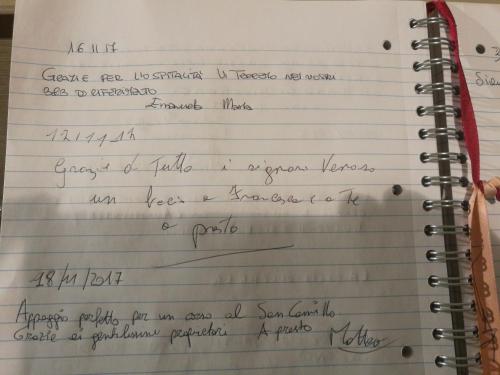 16.11.17
GRAZIE PER L'OSPITALITÀ
B&B DI RIFERIMENTO
Emanuela Mario
17/11/17
Grazie d Tutto i signori Veroso
un bacio a Francesca e a Te
a presto
18/11/2017
Appoggio perfetto per un corso al San Camillo
Grazie ai gentilissimi proprietari A presto Matteo